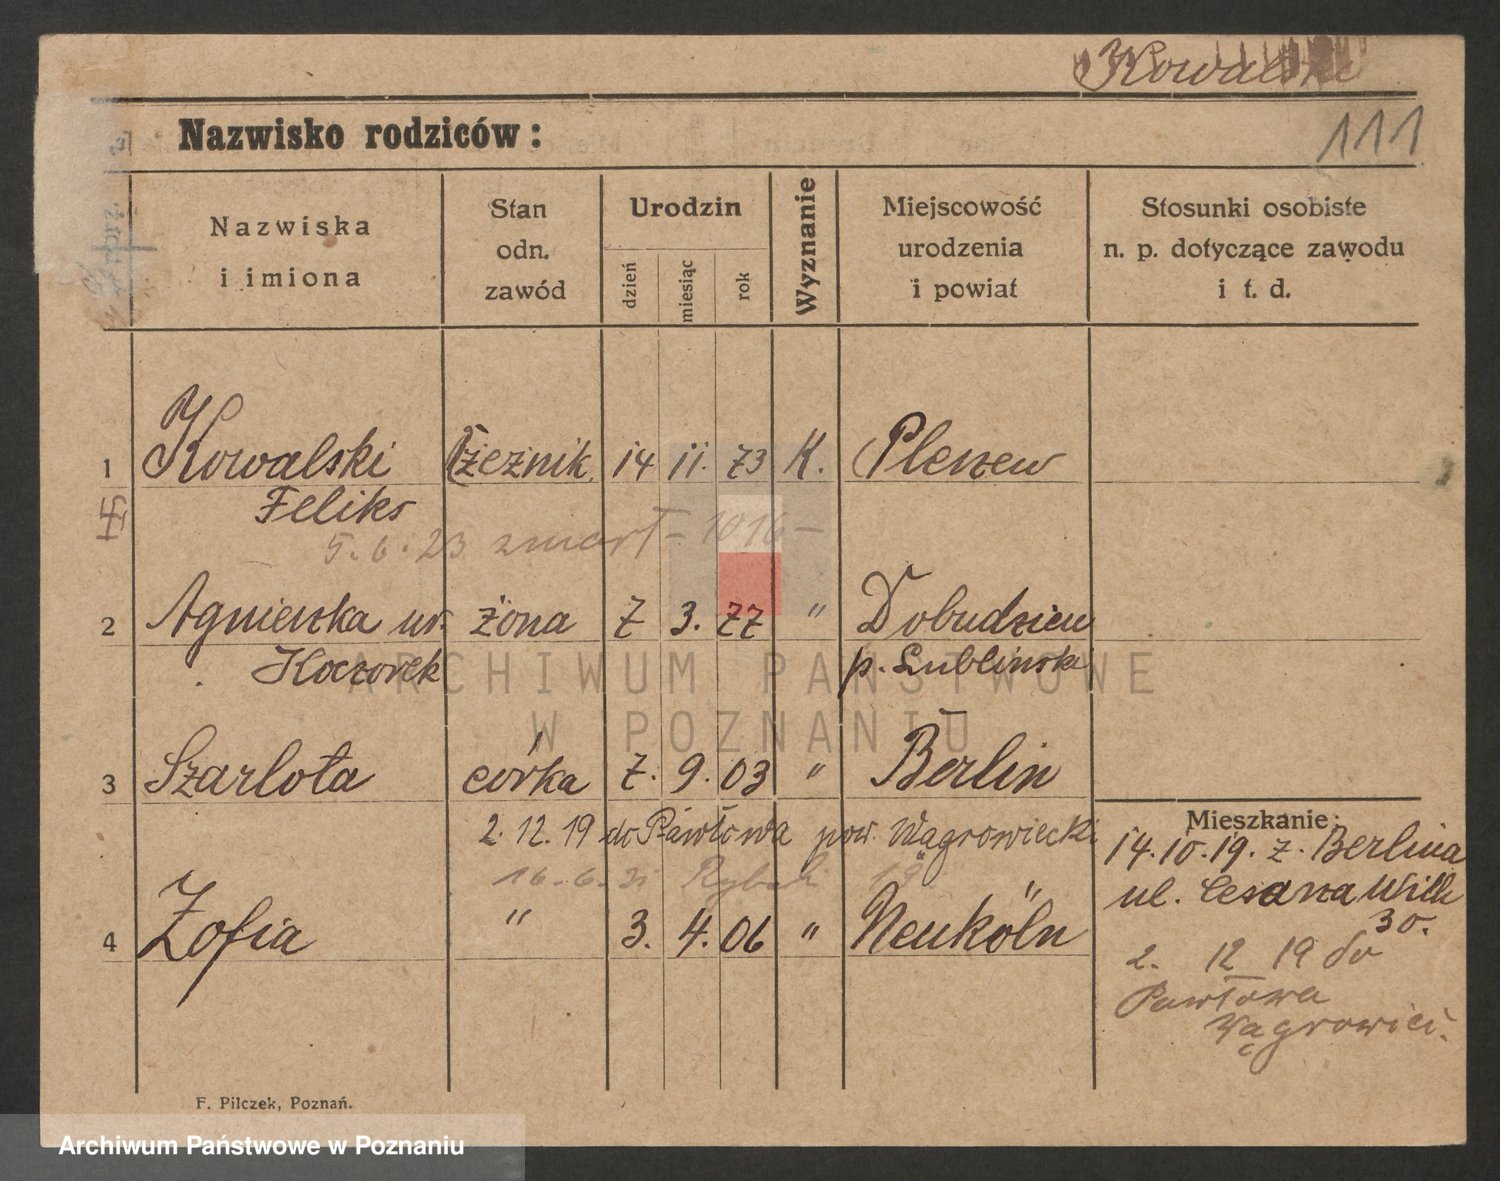 Kowalski
111
Nazwisko rodziców:
Nazwiska
i imiona
Stan
odn.
zawód
Urodzin
dzień
miesiąc
rok
Wyznanie
Miejscowość
urodzenia
i powiat
Stosunki osobiste
n. p. dotyczące zawodu
i t. d.
1 Kowalski rzeźnik 14 11. 73 K. Pleszew
Feliks
5. 6. 23 zmarł - 1016 -
2 Agnieszka ur. żona 7 3. 77 " Dobudzien
Kaczorek p. Lublinski
ARCHIWUM PAŃSTWOWE
W POZNANIU
3 Szarlota córka 7. 9. 03 " Berlin
2. 12. 19 do Pawłowa pow. Wągrowiecki
16. 6.
4 Zofia " 3. 4. 06 " Neuköln
Mieszkanie:
14. 10. 19. z. Berlina
ul. Cesarza Wilh
30.
2. 12 19 do
Pawłowa
Wągrowiec.
F. Pilczek, Poznań.
Archiwum Państwowe w Poznaniu